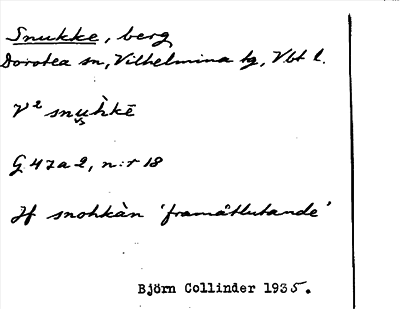 Snukke, berg
Dorotea sn, Vilhelmina tg, Vbt l.
V² snu̯h̀kē
G 47a2, n:r 18
Jf snohkàn 'framåtlutande'
Björn Collinder 1935.